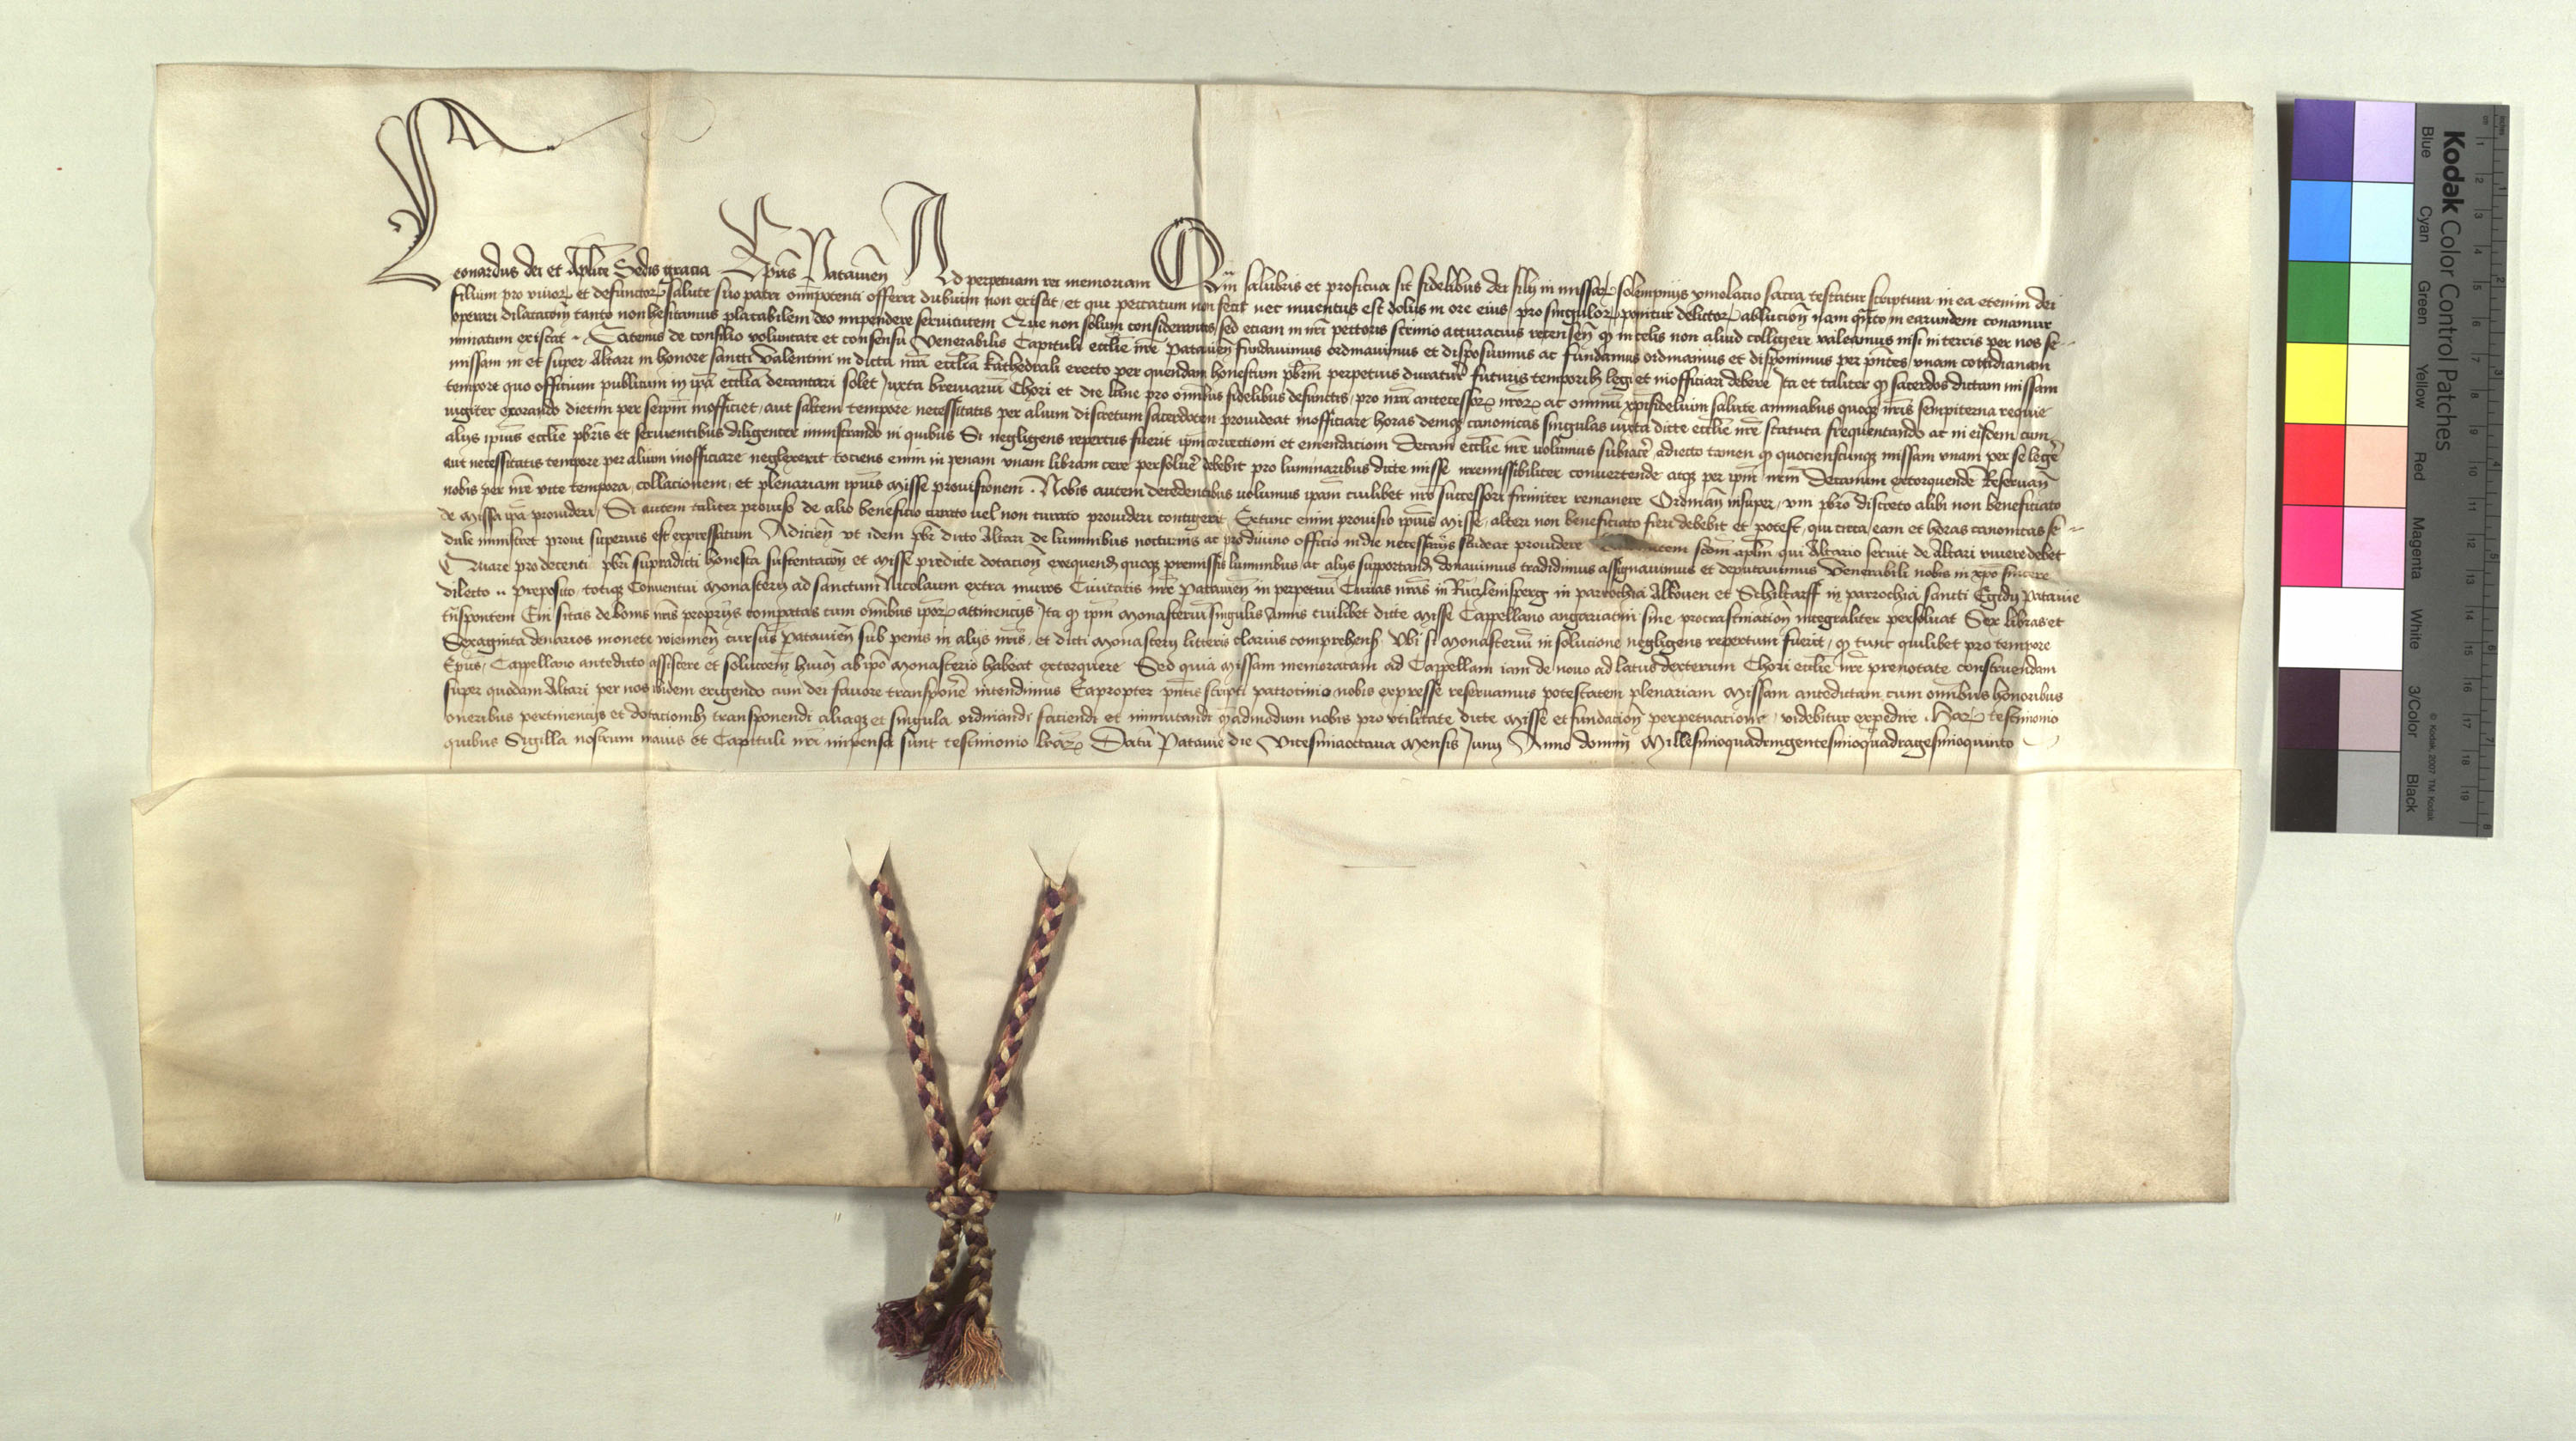 Leonardus dei et Aplice Sedis gracia Epus Patauien Ad perpetuam rei memoriam Qm salubris et proficua sit fidelibus dei filij in missaꝝ solempnijs ymolacio sacra testatur scriptura in ea etenim dei
filium pro viuoꝝ et defunctoꝝ salute suo patri omipotenti offerri dubium non existit et qui peccatum non fecit nec inuentus est dolus in ore eius pro singuloꝝ ponitur delictoꝝ ablucion nam qnto in earundem conamur
operari dilatacion tanto non hesitamus placabilem deo impendere seruitutem Que non solum considerantes sed etiam in nri pectoris scrinio accuracius recensen ꝙ in celis non aliud colligere valeamus nisi in terris per nos se-
minatum existat Eatenus de consilio voluntate et consensu Venerabilis Capituli ecclie nre Patauien fundauimus ordinauimus et disposuimus ac fundamus ordinamus et disponimus per pntes vnam cottidianam
missam in et super Altari in honore sancti Valentini in dicta nra ecclia kathedrali erecto per quendam honestum pbrm perpetuis duratur futuris temporibꝫ legi et inofficiari debere Ita et taliter ꝙ sacerdos dictam missam
tempore quo officium publicum in ipa ecclia decantari solet Iuxta breuiariu Chori et die lune pro omibus fidelibus defunctis pro nra antecessoꝝ nroꝝ ac omniu xpifidelium salute animabus quoqꝫ nris sempiterna requie
iugiter exorando dietim per seipm inofficiet aut saltem tempore necessitatis per alium discretum sacerdotem prouideat inofficiare horas demqꝫ canonicas singulas iuxta dicte ecclie nre statuta frequentando ac in eisdem cum
alijs ipius ecclie pbris et seruientibus diligenter ministrando in quibus Si negligens repertus fuerit ipm correctioni et emendacioni Decani ecclie nre volumus subiacere adiecto tamen ꝙ quocienscunqꝫ missam vnam per se lege
aut necessitatis tempore per alium inofficiare neglexerit tociens enim in penam vnam libram cere persoluere debebit pro luminaribus dicte misse irremissibiliter conuertende atqꝫ per ipm nrm Decanum extorquende Reseruan
nobis per nre vite tempora collacionem et plenariam ipius Misse prouisionem Nobis autem decedentibus volumus ipam cuilibet nro successori firmiter remanere Ordinan insuper vni pbro discreto alibi non beneficiato
de Missa ipa prouideri Si autem taliter prouiso de alio beneficio curato uel non curato prouideri contigerit Extunc enim prouisio ipius Misse alteri non beneficiato fieri debebit et potest qui circa eam et horas canonicas se-
dule ministret prout superius est expressatum Adicien vt idem pbr dicto Altari de luminibus nocturnis ac pro diuino officio in die necessarijs studeat prouidere scdm aplm qui Altario seruit de Altari viuere debet
Quare pro decenti pbri supradicti honesta sustentacion et Misse predicte dotacion exequend quoqꝫ premissis luminibus ac alijs supportand donauimus tradidimus assignauimus et deputauimus Venerabili nobis in xpo sincere
dilecto Preposito totiqꝫ Conuentui Monasterij ad sanctum Nicolaum extra muros Ciuitatis nre Patauien in perpetuu Curias nras in Rutzleinsperg in parrochia Alkouen et Schiltarff in parrochia sancti Egidij Patauie
trispontem Eni sitas de bonis nris proprijs comparatas cum omibus ipoꝝ attinencijs Ita ꝙ ipm Monasteriu singulis Annis cuilibet dicte Misse Cappellano angariatim sine procrastination integraliter persoluat Sex libras et
Sexaginta denarios monete wiennen cursus Patauien sub penis in alijs nris et dicti Monasterij litteris clarius comprehens Vbi si Monasteriu in solucione negligens repertum fuerit ꝙ tunc quilibet pro tempore
Epus Cappellano antedicto assistere et solucoem huiusmodi ab ipo Monasterio habeat extorquere Sed quia Missam memoratam ad Cappellam iam de nouo ad latus dexterum Chori ecclie nre prenotate construendam
super quodam Altari per nos ibidem erigendo cum dei fauore transponere intendimus Eapropter pntis scripti patrocinio nobis expresse reseruamus potestatem plenariam Missam antedictam cum omibus honoribus
oneribus pertinencijs et dotacionibꝫ transponendi aliaqꝫ et singula ordinandi faciendi et immutandi qmadmodum nobis pro vtilitate dicte Misse et fundacion perpetuatione videbitur expedire Haꝝ testimonio
quibus Sigilla nostrum maius et Capituli nri inpensa sunt testimonio lraꝝ Datu Patauie die Vicesimaoctaua Mensis Junij Anno domini Millesimoquadringentesimoquadragesimoquinto
Kodak Color Control Patches
Blue Cyan Green Yellow Red Magenta White 3/Color Black
© Kodak, 2007 TM: Kodak